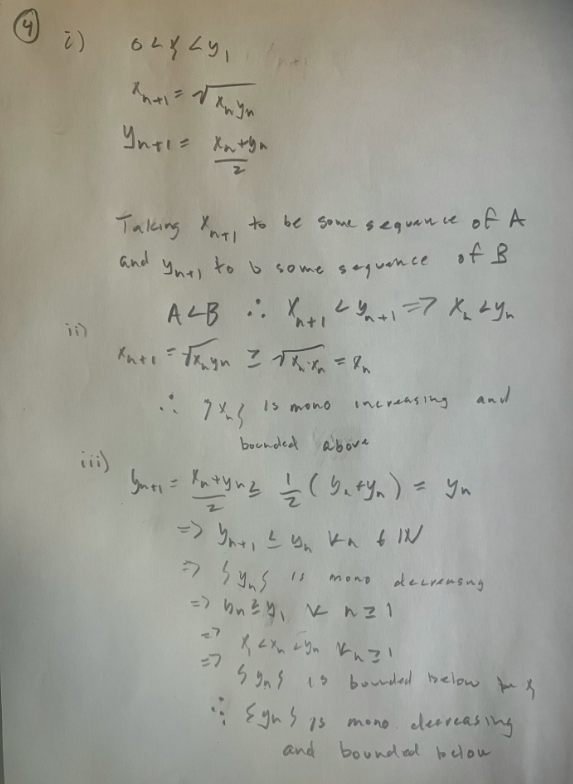 ④ i) 0 < x₁ < y₁
xₙ₊₁ = √(xₙyₙ)
yₙ₊₁ = (xₙ+yₙ)/2
Taking xₙ₊₁ to be some sequence of A
and yₙ₊₁ to b some sequence of B
A<B ∴ xₙ₊₁ < yₙ₊₁ => xₙ < yₙ
ii)
xₙ₊₁ = √(xₙyₙ) ≥ √(xₙ·xₙ) = xₙ
∴ {xₙ} is mono increasing and
bounded above
iii)
yₙ₊₁ = (xₙ+yₙ)/2 ≤ 1/2 (yₙ+yₙ) = yₙ
=> yₙ₊₁ ≤ yₙ ∀n ∈ ℕ
=> {yₙ} is mono decreasing
=> yₙ ≥ y₁ ∀ n ≥ 1
=> x₁ < xₙ < yₙ ∀n ≥ 1
=> {yₙ} is bounded below
∴ {yₙ} is mono. decreasing
and bounded below